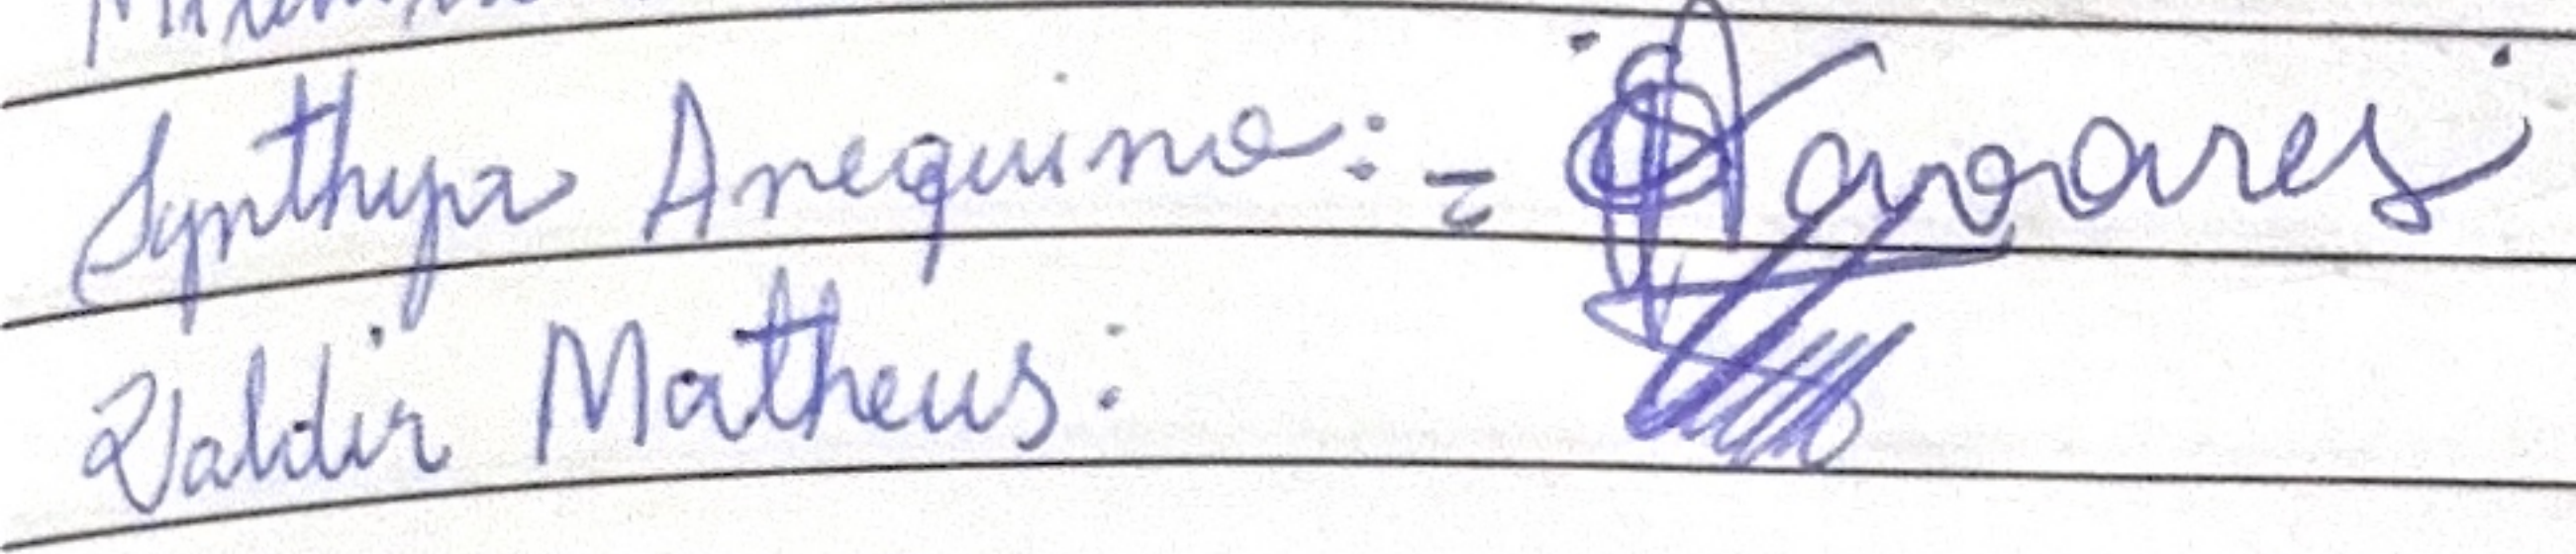 Synthya Anequino: = Tavares
Valdir Matheus: